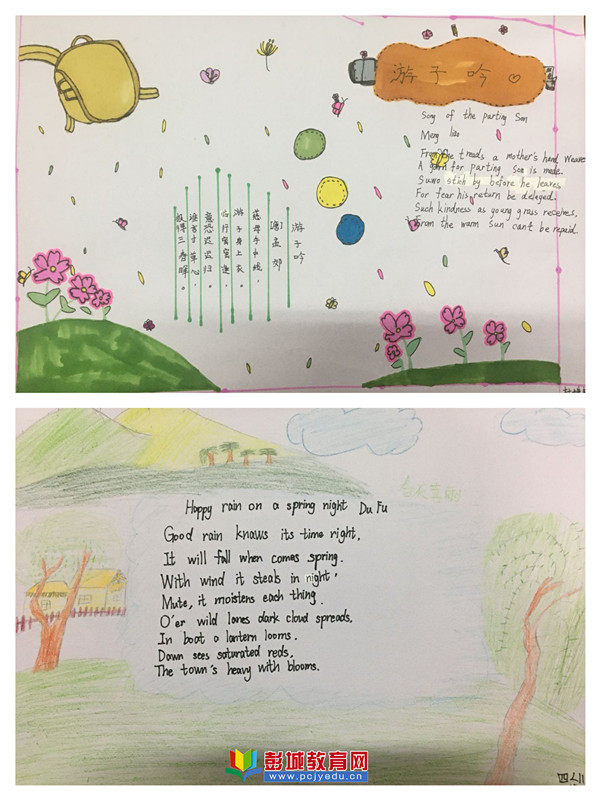 游子吟
Song of the parting Son
Meng
From the treads a mother's hand weaves
A gown for parting Son is made.
stich by before he leaves
For fear his return be delayed.
Such kindness as young grass receives,
From the warm Sun cant be repaid.
游子吟
唐 孟郊
慈母手中线,
游子身上衣。
临行密密缝,
意恐迟迟归。
谁言寸草心,
报得三春晖。
Happy rain on a spring night Du Fu
Good rain knows its time right,
It will fall when comes spring.
With wind it steals in night,
Mute, it moistens each thing.
O'er wild lanes dark cloud spreads,
In boat a lantern looms.
Dawn sees saturated reds,
The town's heavy with blooms.
彭城教育网
www.pcjyedu.cn